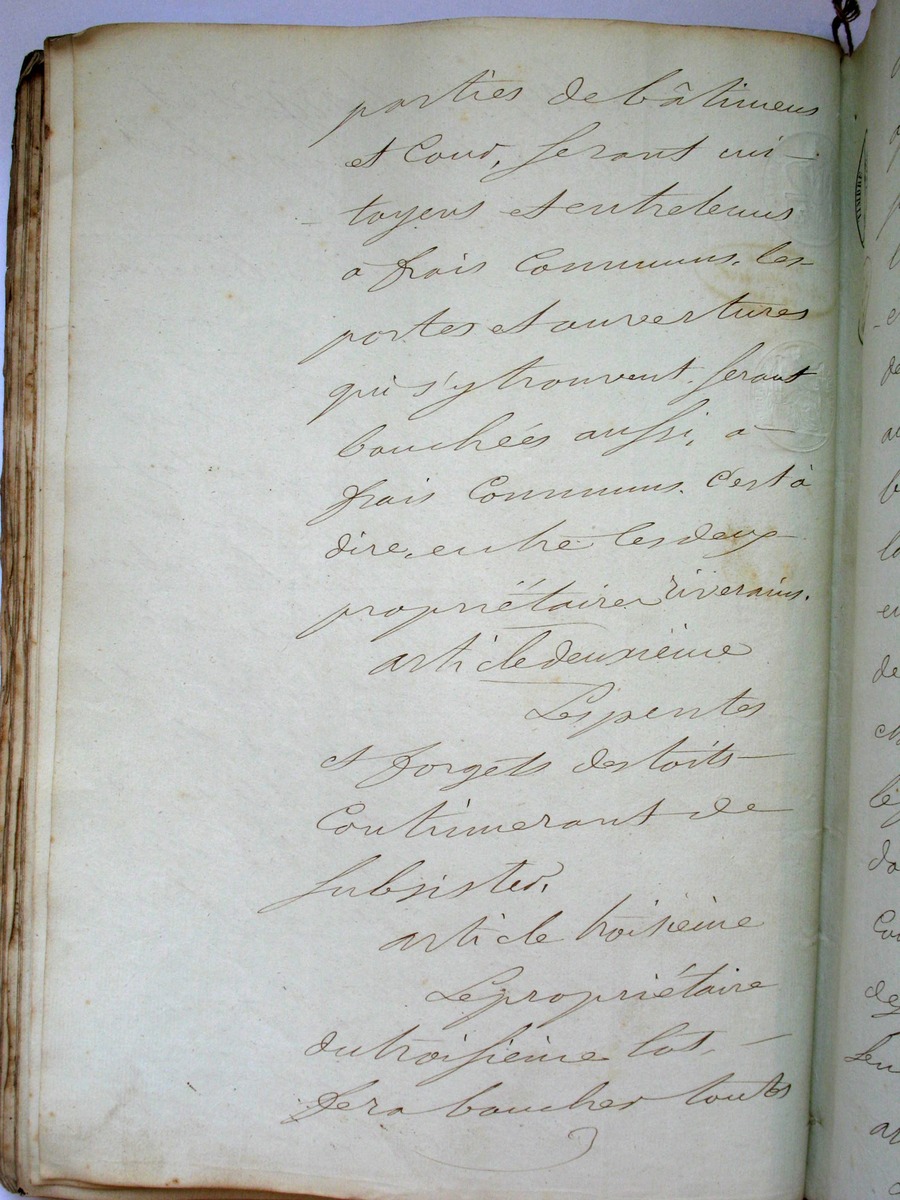 parties de bâtimens
et Cour, seront mi-
toyens et entretenus
à frais Communs, les
portes et ouvertures
qui s'y trouvent, seront
bouchées aussi, à
frais Communs. C'est à
dire, entre les deux
propriétaires riverains.
article deuxième
Les pentes
et forgets des toits
Continueront de
subsister.
article troisième
Le propriétaire
du troisième lot,
fera boucher toutes
TIMBRE